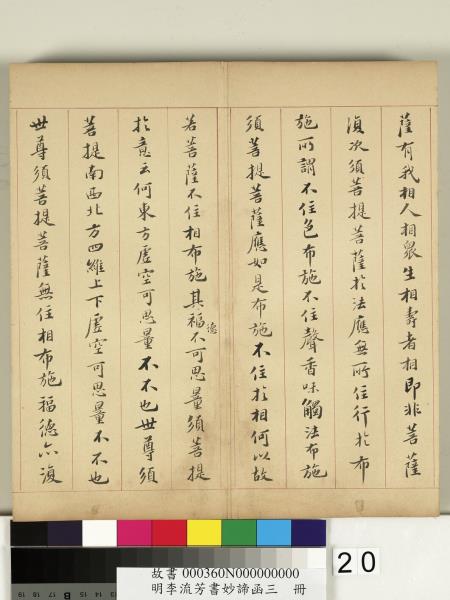 薩有我相人相眾生相壽者相即非菩薩
復次須菩提菩薩於法應無所住行於布
施所謂不住色布施不住聲香味觸法布施
須菩提菩薩應如是布施不住於相何以故
若菩薩不住相布施其福德不可思量須菩提
於意云何東方虛空可思量不不也世尊須
菩提南西北方四維上下虛空可思量不不也
世尊須菩提菩薩無住相布施福德亦復
20
故書 000360N000000000
明李流芳書妙諦函三 冊